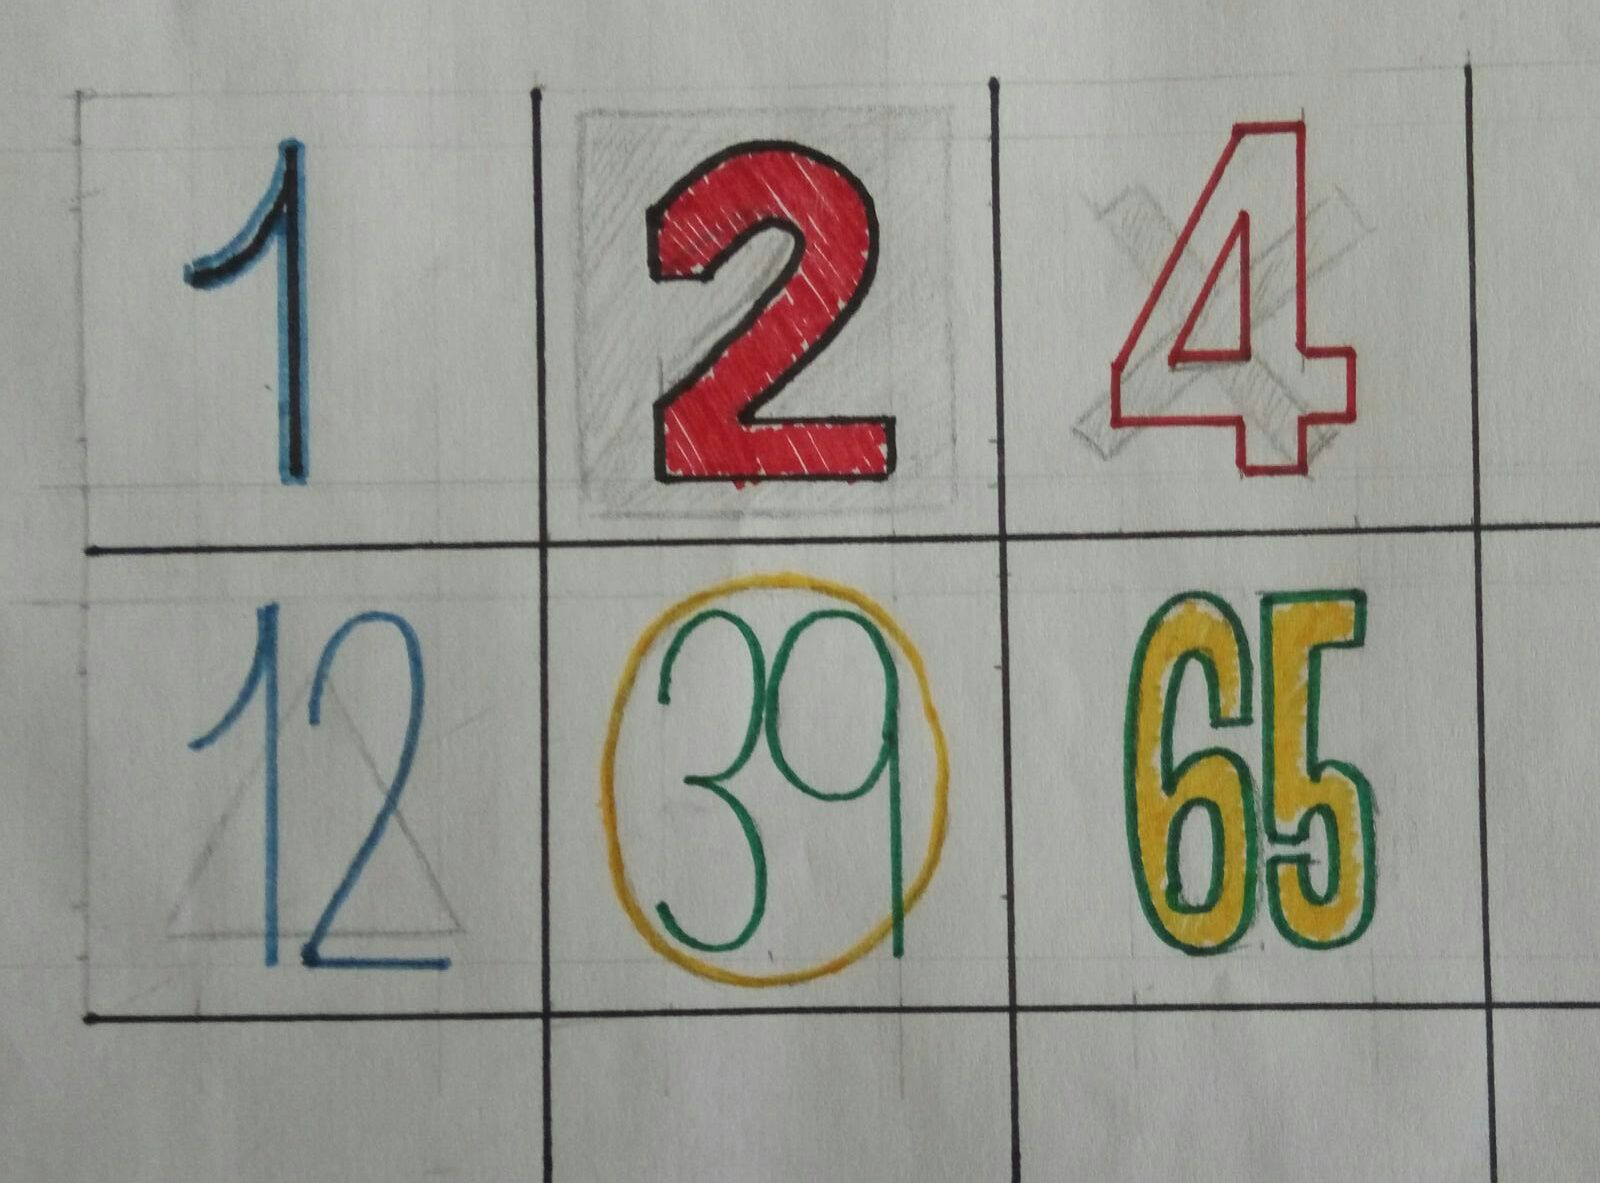 1 2 4
12 39 65